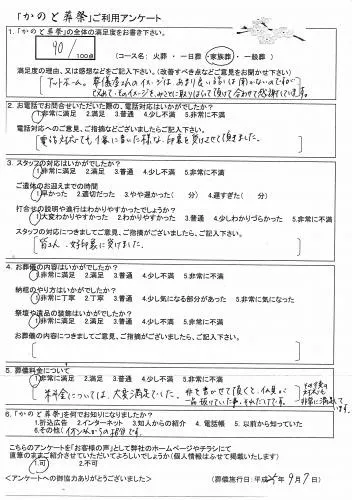 「かのと葬祭」ご利用アンケート
1. 「かのと葬祭」の全体の満足度をお書き下さい。
90/100点 (コース名: 火葬 ・ 一日葬 ・ 家族葬 ・ 一般葬 )
満足度の理由、又は感想などをご記入下さい。(改善すべき点などご意見をお聞かせ下さい)
2. お電話でお問合せいただいた際の、電話対応はいかがでしたか?
1.非常に満足 2.満足 3.普通 4.少し不満 5.非常に不満
電話対応へのご意見、ご指摘などございましたらご記入下さい。
電話対応でも、1番に書いた様な、印象を受けさせて頂きました。
3. スタッフの対応はいかがでしたか?
1.非常に満足 2.満足 3.普通 4.少し不満 5.非常に不満
ご遺体のお迎えまでの時間
1.早かった 2.適切だった 3.やや遅かった( 分) 4.遅すぎた( 分)
打合せの説明や進行はわかりやすかったでしょうか?
1.大変わかりやすかった 2.わかりやすかった 3.普通 4.少しわかりづらかった 5.非常に不満
スタッフの対応につきましてご意見、ご指摘がございましたら、ご記入下さい。
皆さん、好印象に受けました。
4. お葬儀の内容はいかがでしたか?
1.非常に満足 2.満足 3.普通 4.少し不満 5.非常に不満
納棺のやり方はいかがでしたか?
1.非常に丁寧 2.丁寧 3.普通 4.少し気になる部分があった 5.非常に気になった
祭壇や遺品の装飾はいかがでしたか?
1.非常に満足 2.満足 3.普通 4.少し不満 5.非常に不満
お葬儀の内容につきましてご意見、ご指摘がございましたら、ご記入下さい。
5. 葬儀料金について
1.非常に満足 2.満足 3.普通 4.少し不満 5.非常に不満
料金については、大変満足でした。
6. 「かのと葬祭」を何でお知りになりましたか?
1.折込広告 2.インターネット 3.知人からの紹介 4.電話帳 5.以前から知っていた
6.その他( イオンさんからの紹介です。
こちらのアンケートを「お客様の声」として弊社のホームページやチラシにて
直筆のままご紹介させていただいてよろしいでしょうか(個人情報はふせて掲載いたします)
1.可 2.不可
<アンケートへの御協力ありがとうございました> (葬儀施行日: 平成25年 9月 7日)